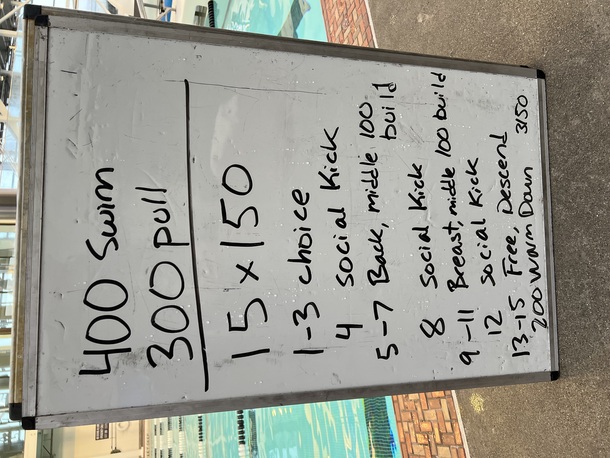 400 Swim
300 pull
15 x 150
1-3 choice
4 social Kick
5-7 Back, middle 100
build
8 social Kick
9-11 Breast, middle 100 build
12 social Kick
13-15 Free, Descend
200 Warm Down 3150